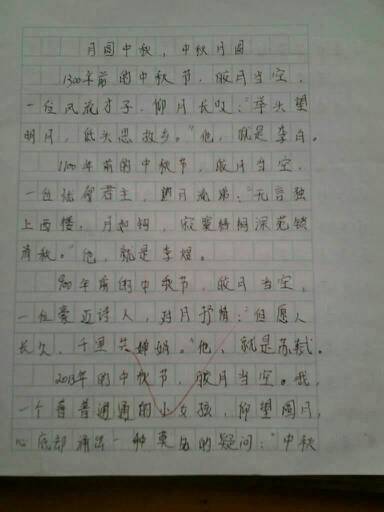 月圆中秋，中秋月圆
1300年前的中秋节，皎月当空，
一位风流才子，仰月长叹："举头望
明月，低头思故乡。"他，就是李白。
1100年前的中秋节，皎月当空，
一位忧郁君主，望月流涕："无言独
上西楼，月如钩，寂寞梧桐深院锁
清秋。"他，就是李煜。
900年前的中秋节，皎月当空，
一位豪迈诗人，对月抒情："但愿人
长久，千里共婵娟。"他，就是苏轼。
2013年的中秋节，皎月当空。我，
一个普普通通的小女孩，仰望圆月，
心底却涌出一种莫名的疑问："中秋